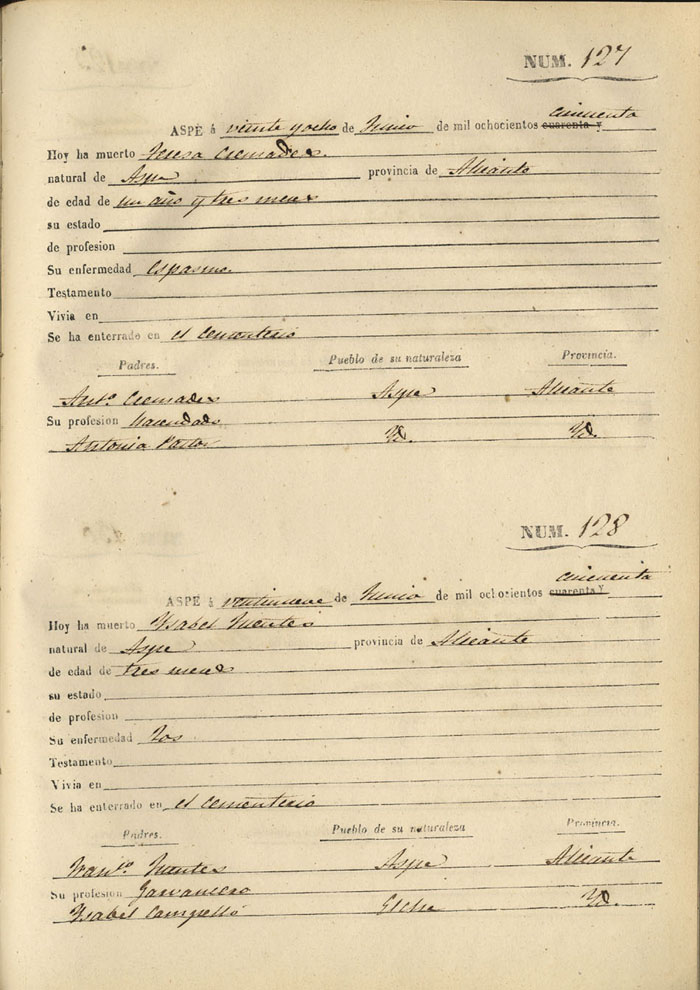 NUM. 127
cincuenta
ASPE á veinte y ocho de Junio de mil ochocientos cuarenta y
Hoy ha muerto Teresa Cremades.
natural de Aspe provincia de Alicante
de edad de un año y tres meses
su estado
de profesion
Su enfermedad Espasmo
Testamento
Vivia en
Se ha enterrado en el Cementerio
Padres. Pueblo de su naturaleza Provincia.
Anto. Cremades Aspe Alicante
Su profesion Hacendado
Antonia Pastor Yd. Yd.
NUM. 128
cincuenta
ASPE á ventinueve de Junio de mil ochocientos cuarenta y
Hoy ha muerto Ysabel Fuentes
natural de Aspe provincia de Alicante
de edad de tres meses
su estado
de profesion
Su enfermedad Tos
Testamento
Vivia en
Se ha enterrado en el Cementerio
Padres. Pueblo de su naturaleza Provincia.
Franco. Fuentes Aspe Alicante
Su profesion
Ysabel Campello Elche Yd.